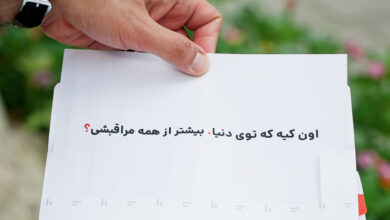 اون کیه که توی دنیا، بیشتر از همه مراقبشی؟